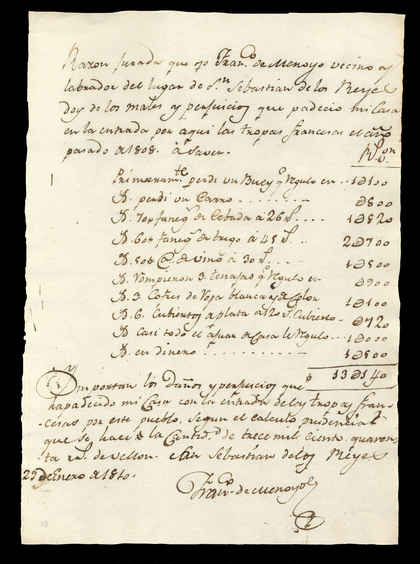 Razon jurada que yo Fran.co de Menoyo vecino y
labrador del lugar de S.n Sebastian de los Reyes
doy de los males y perjuicios que padecio mi Casa
en la entrada por aqui las tropas francesas el año
pasado de 1808. á saver.
R.s von
Primeramte perdi un Buey q.e regulo en 1D100
D. perdi un Carro D800
D. 70 faneg.s de Cebada á 26 1D820
D. 60 faneg.s de trigo á 45 2D700
D. 50 @. de vino á 30 1D500
D. Rompieron 3 tenajas q.e regulo en D900
D. 3 Cofres de Ropa blanca y de Color 1D100
D. 6 Cubiertos de plata á 120 Cubierto D720
D. casi todo el ajuar de Casa le Regulo 1D000
D. en dinero 1D500
13D140
Importan los Daños y perjuicios que
ha padecido mi Casa con la entrada de las tropas fran-
cesas por este pueblo, segun el calculo prudencial
que se hace la Cantid.d de trece mil ciento quaren-
ta r.s de vellon. Sebastian de los Reyes
25 de Enero de 1810.
Fran.co de Menoyo